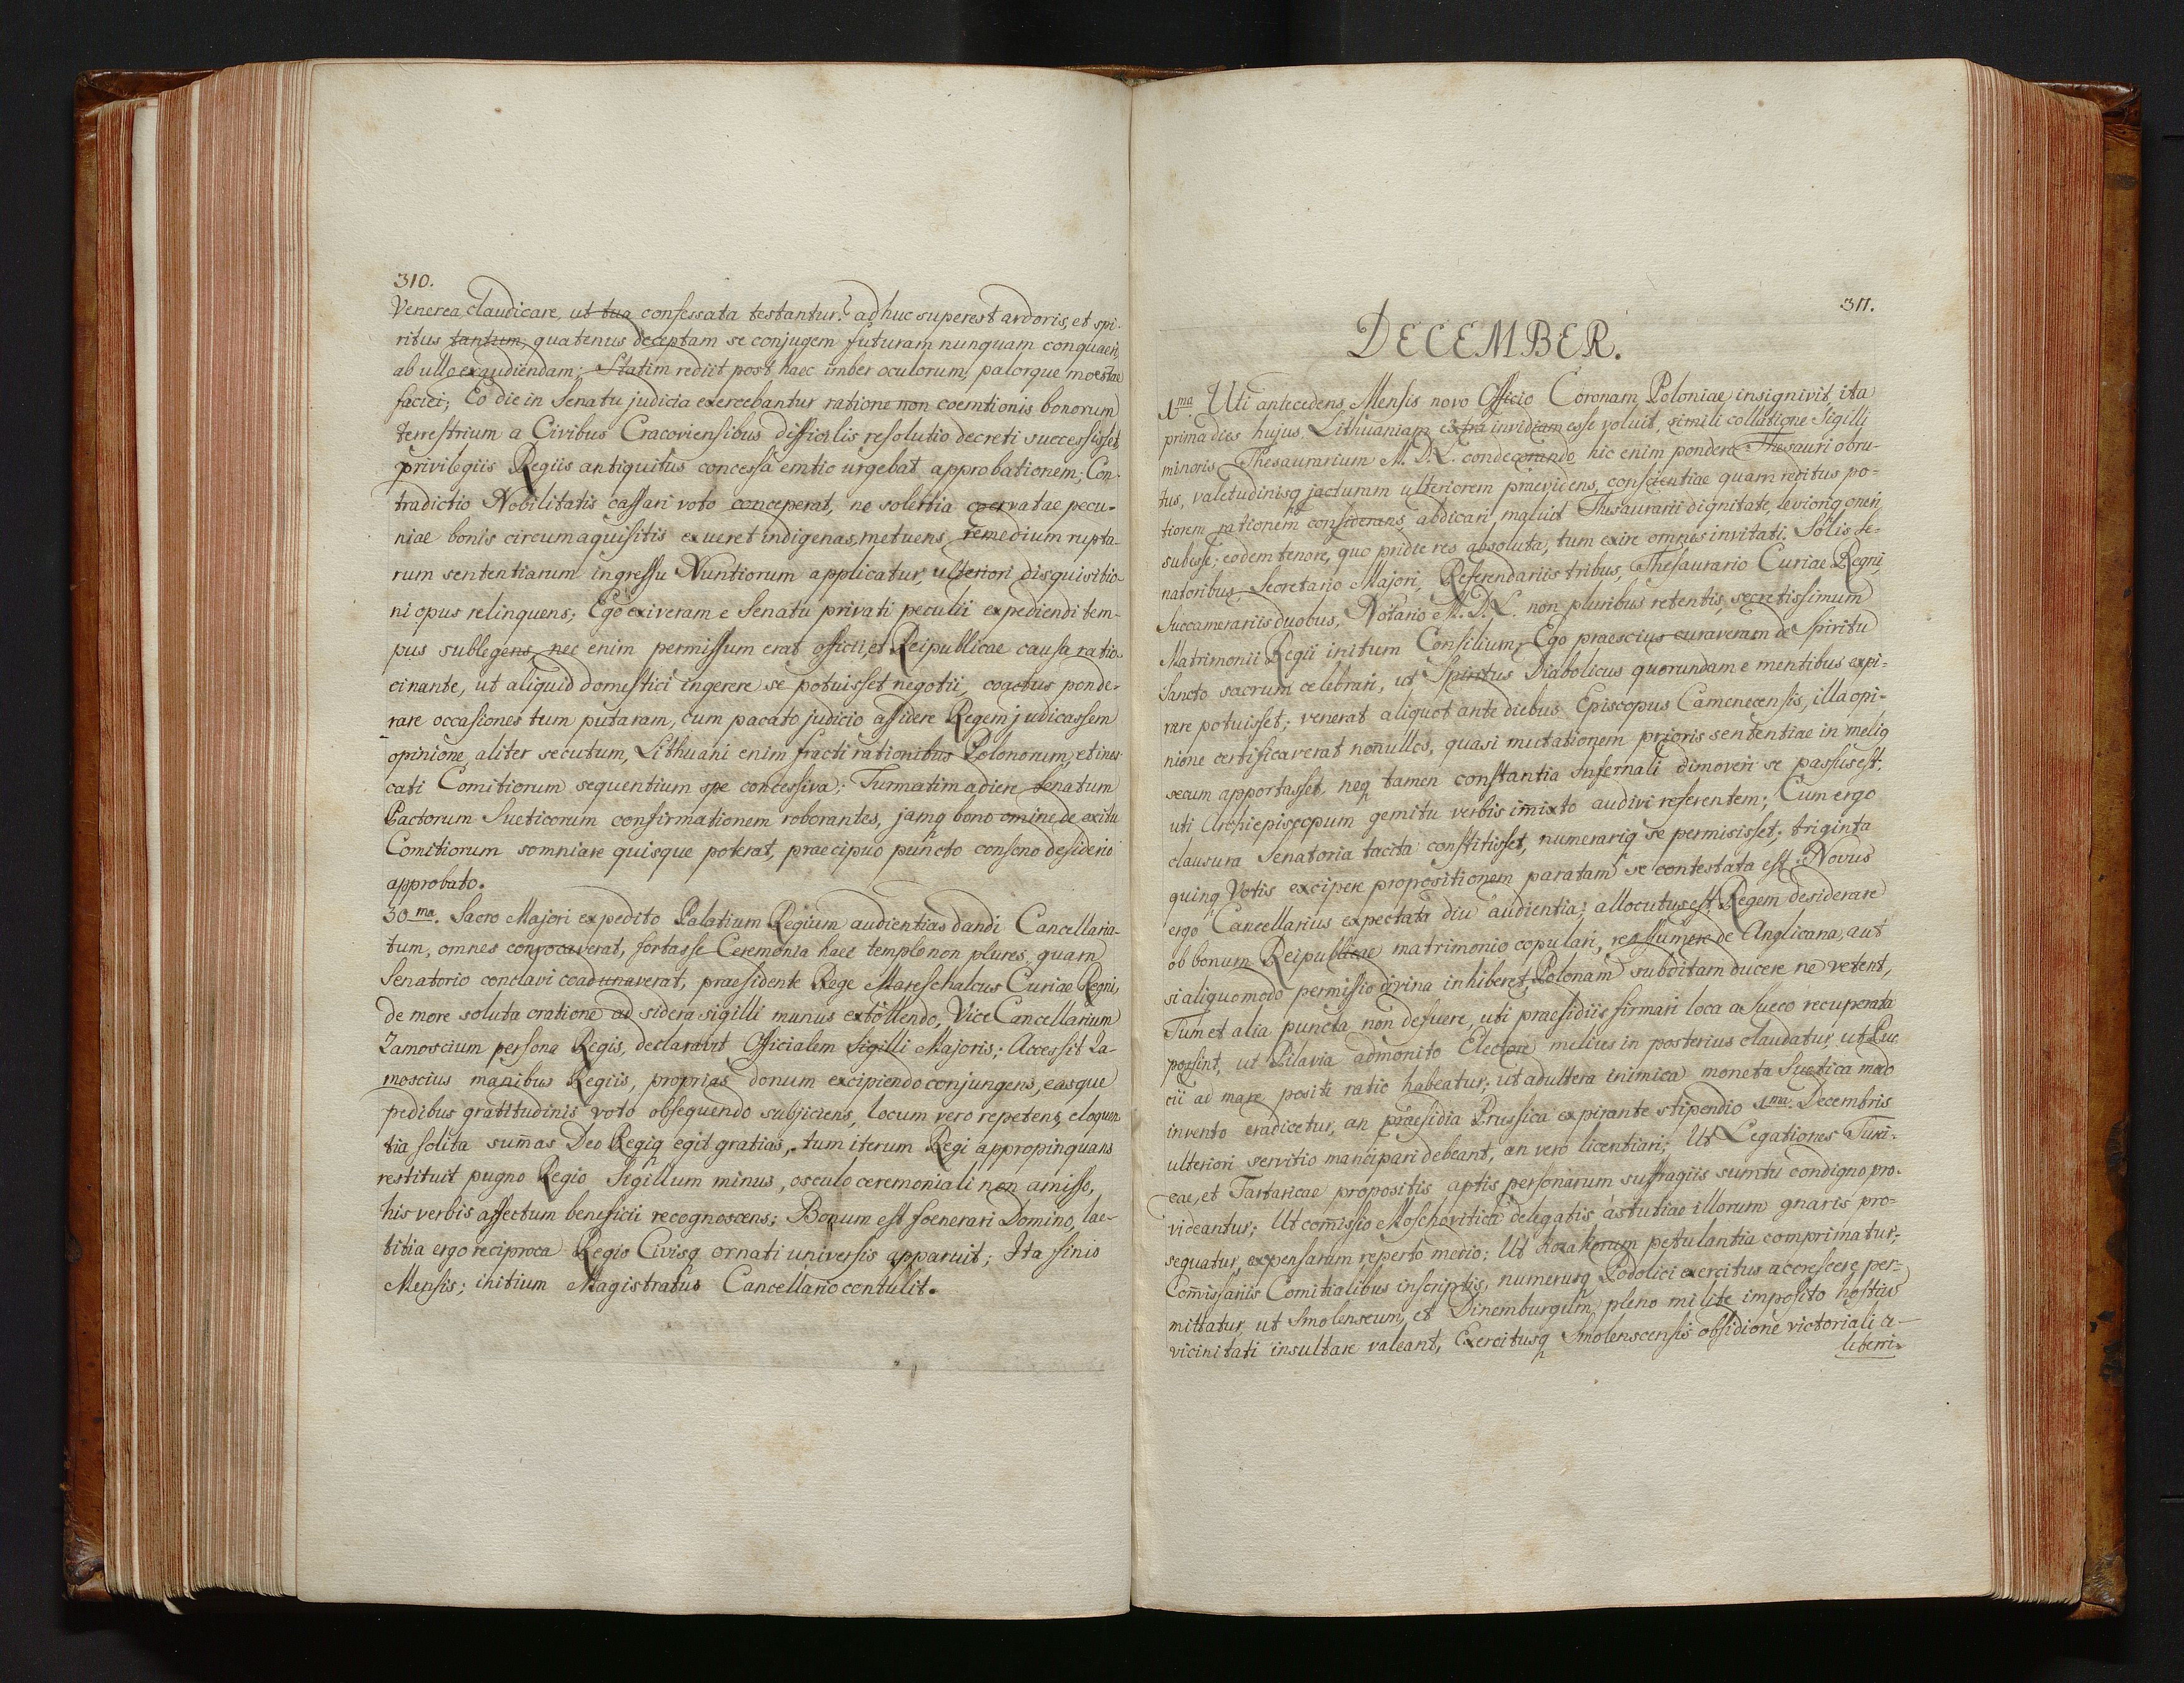 310.
Venerea claudicare, ut tua confessata testantur? adhuc superest ardoris, et spi-
ritus tantum, quatenus deceptam se conjugem futuram nunquam conquaeri,
ab ullo exaudiendam; Statim rediit post haec imber oculorum, palorque moestae
faciei; Eo die in Senatu judicia exercebantur ratione non coemtionis bonorum
terrestrium a Civibus Cracoviensibus difficilis resolutio decreti successisset,
privilegiis Regiis antiquitus concessa emtio urgebat approbationem; Con-
tradictio Nobilitatis cassari voto conceperat, ne solertia coervatae pecu-
niae bonis circumaquisitis exueret indigenas, metuens, remedium rupta-
rum sententiarum ingressu Nuntiorum applicatur, ulteriori disquisitio-
ni opus relinquens; Ego exiveram e Senatu privati peculii expediendi tem-
pus sublegens, nec enim permissum erat officii, et Reipublicae causa ratio-
cinante, ut aliquid domestici ingerere se potuisset negotii, coactus ponde-
rare occasiones tum putaram, cum pacato judicio assidere Regem judicassem
opinione aliter secutum, Lithuani enim fracti rationibus Polonorum, et ines-
cati Comitiorum sequentium spe concessiva; Turmatim adiere Senatum
Pactorum Sueticorum confirmationem roborantes, jamq bono omine de exitu
Comitiorum somniare quisque poterat, praecipuo puncto consono desiderio
approbato.
30ma. Sacro Majori expedito Palatium Regium audientias dandi Cancellaria-
tum, omnes convocaverat, fortasse Ceremonia haec templo non plures, quam
Senatorio conclavi coadunaverat, praesidente Rege Mareschalcus Curiae Regni,
de more soluta oratione ad sidera sigilli munus extollendo, Vice Cancellarium
Zamoscium persona Regis, declaravit Officialem Sigilli Majoris; Accessit Za-
moscius manibus Regiis, proprias donum excipiendo conjungens, easque
pedibus gratitudinis voto obsequendo subjiciens, locum vero repetens, eloquen
tia solita sumas Deo Regiq egit gratias, tum iterum Regi appropinquans
restituit pugno Regio Sigillum minus, osculo ceremoniali non amisso,
his verbis affectum beneficii recognoscens; Bonum est foenerari Domino, lae-
titia ergo reciproca Regis Civisq ornati universis apparuit; Ita finis
Mensis; initium Magistratus Cancellario contulit.
311.
DECEMBER.
1ma. Uti antecedens Mensis novo Officio Coronam Poloniae insignivit, ita
prima dies hujus, Lithuaniam extra invidiam esse voluit, simili collatione Sigilli
minoris Thesaurarium M. D. L. condecorando, hic enim pondere Thesauri obru-
tus, valetudinisq jacturam ulteriorem praevidens, conscientiae quam reditus po-
tiorem rationem considerans, abdicari maluit Thesaurarii dignitate, leviorq oneri
subesse; eodem tenore, quo pridie res absoluta, tum exire omnes invitati. Solis Se-
natoribus, Secretario Majori, Referendariis tribus, Thesaurario Curiae Regni,
Succamerariis duobus, Notario M. D. L. non pluribus retentis, secretissimum
Matrimonii Regii initum Consilium; Ego praescius curaveram de Spiritu
Sancto sacrum celebrari, ut Spiritus Diabolicus quorundam e mentibus expi-
rare potuisset; venerat aliquot ante diebus Episcopus Camenecensis, illa opi-
nione certificaverat nonullos, quasi mutationem prioris sententiae in meliq
secum apportasset, neq tamen constantia Infernali dimoveri se passus est,
uti Archiepiscopum gemitu verbis imixto audivi referentem; Cum ergo
clausura Senatoria tacita constitisset, numerariq se permisisset; triginta
quinq Votis excipere propositionem paratam se contestata est: Novus
ergo Cancellarius expectata diu audientia; allocutus est, Regem desiderare
ob bonum Reipublicae matrimonio copulari, reassumere de Anglicana, aut
si aliquomodo permissio divina inhiberet, Polonam subditam ducere ne vetent,
Tum et alia puncta non defuere, uti praesidiis firmari loca a Sueco recuperata
possint, ut Pilavia admonito Electore melius in posterius claudatur, ut Puc
cii ad mare positi ratio habeatur; ut adultera inimica moneta Suetica modo
invento eradicetur, an praesidia Prussica expirante stipendio 1ma. Decembris
ulteriori servitio mancipari debeant, an vero licentiari; Ut Legationes Turci-
cae, et Tartaricae propositis aptis personarum suffragiis sumtu condigno pro-
videantur; Ut comissio Moschovitica delegatis astutiae illorum gnaris pro-
sequatur, expensarum reperto medio; Ut Kozakorum petulantia comprimatur;
Comissariis Comitialibus inscriptis, numerusq Podolici exercitus accrescere per-
mittatur, ut Smolenscum, et Dinemburgum, pleno milite imposito hostius
vicinitati insultare valeant, Exercitusq Smolenscensis obsidione victoriali a-
liberri-